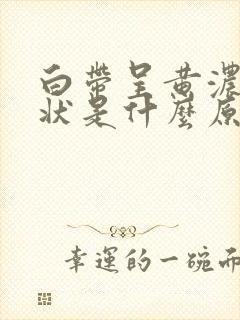 白帶呈黄濃
狀是什麼原
幸運的一碗面